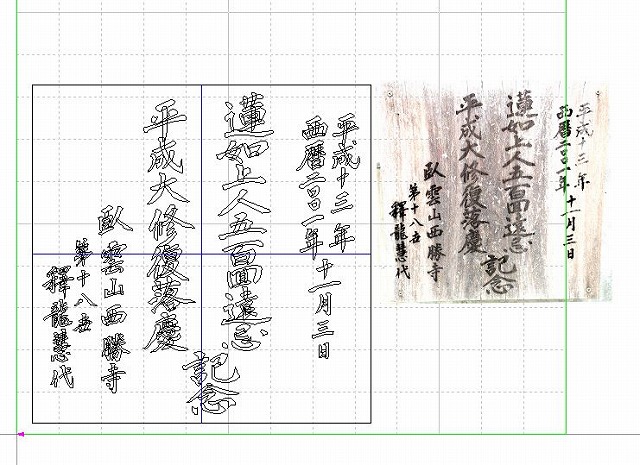 平成十三年
西暦二〇〇一年
十一月三日
蓮如上人五百回遠忌
平成大修復落慶
記念
臥雲山西勝寺
第十八世
釋龍慧代
平成十三年
西暦二〇〇一年
十一月三日
蓮如上人五百回遠忌
平成大修復落慶
記念
臥雲山西勝寺
第十八世
釋龍慧代